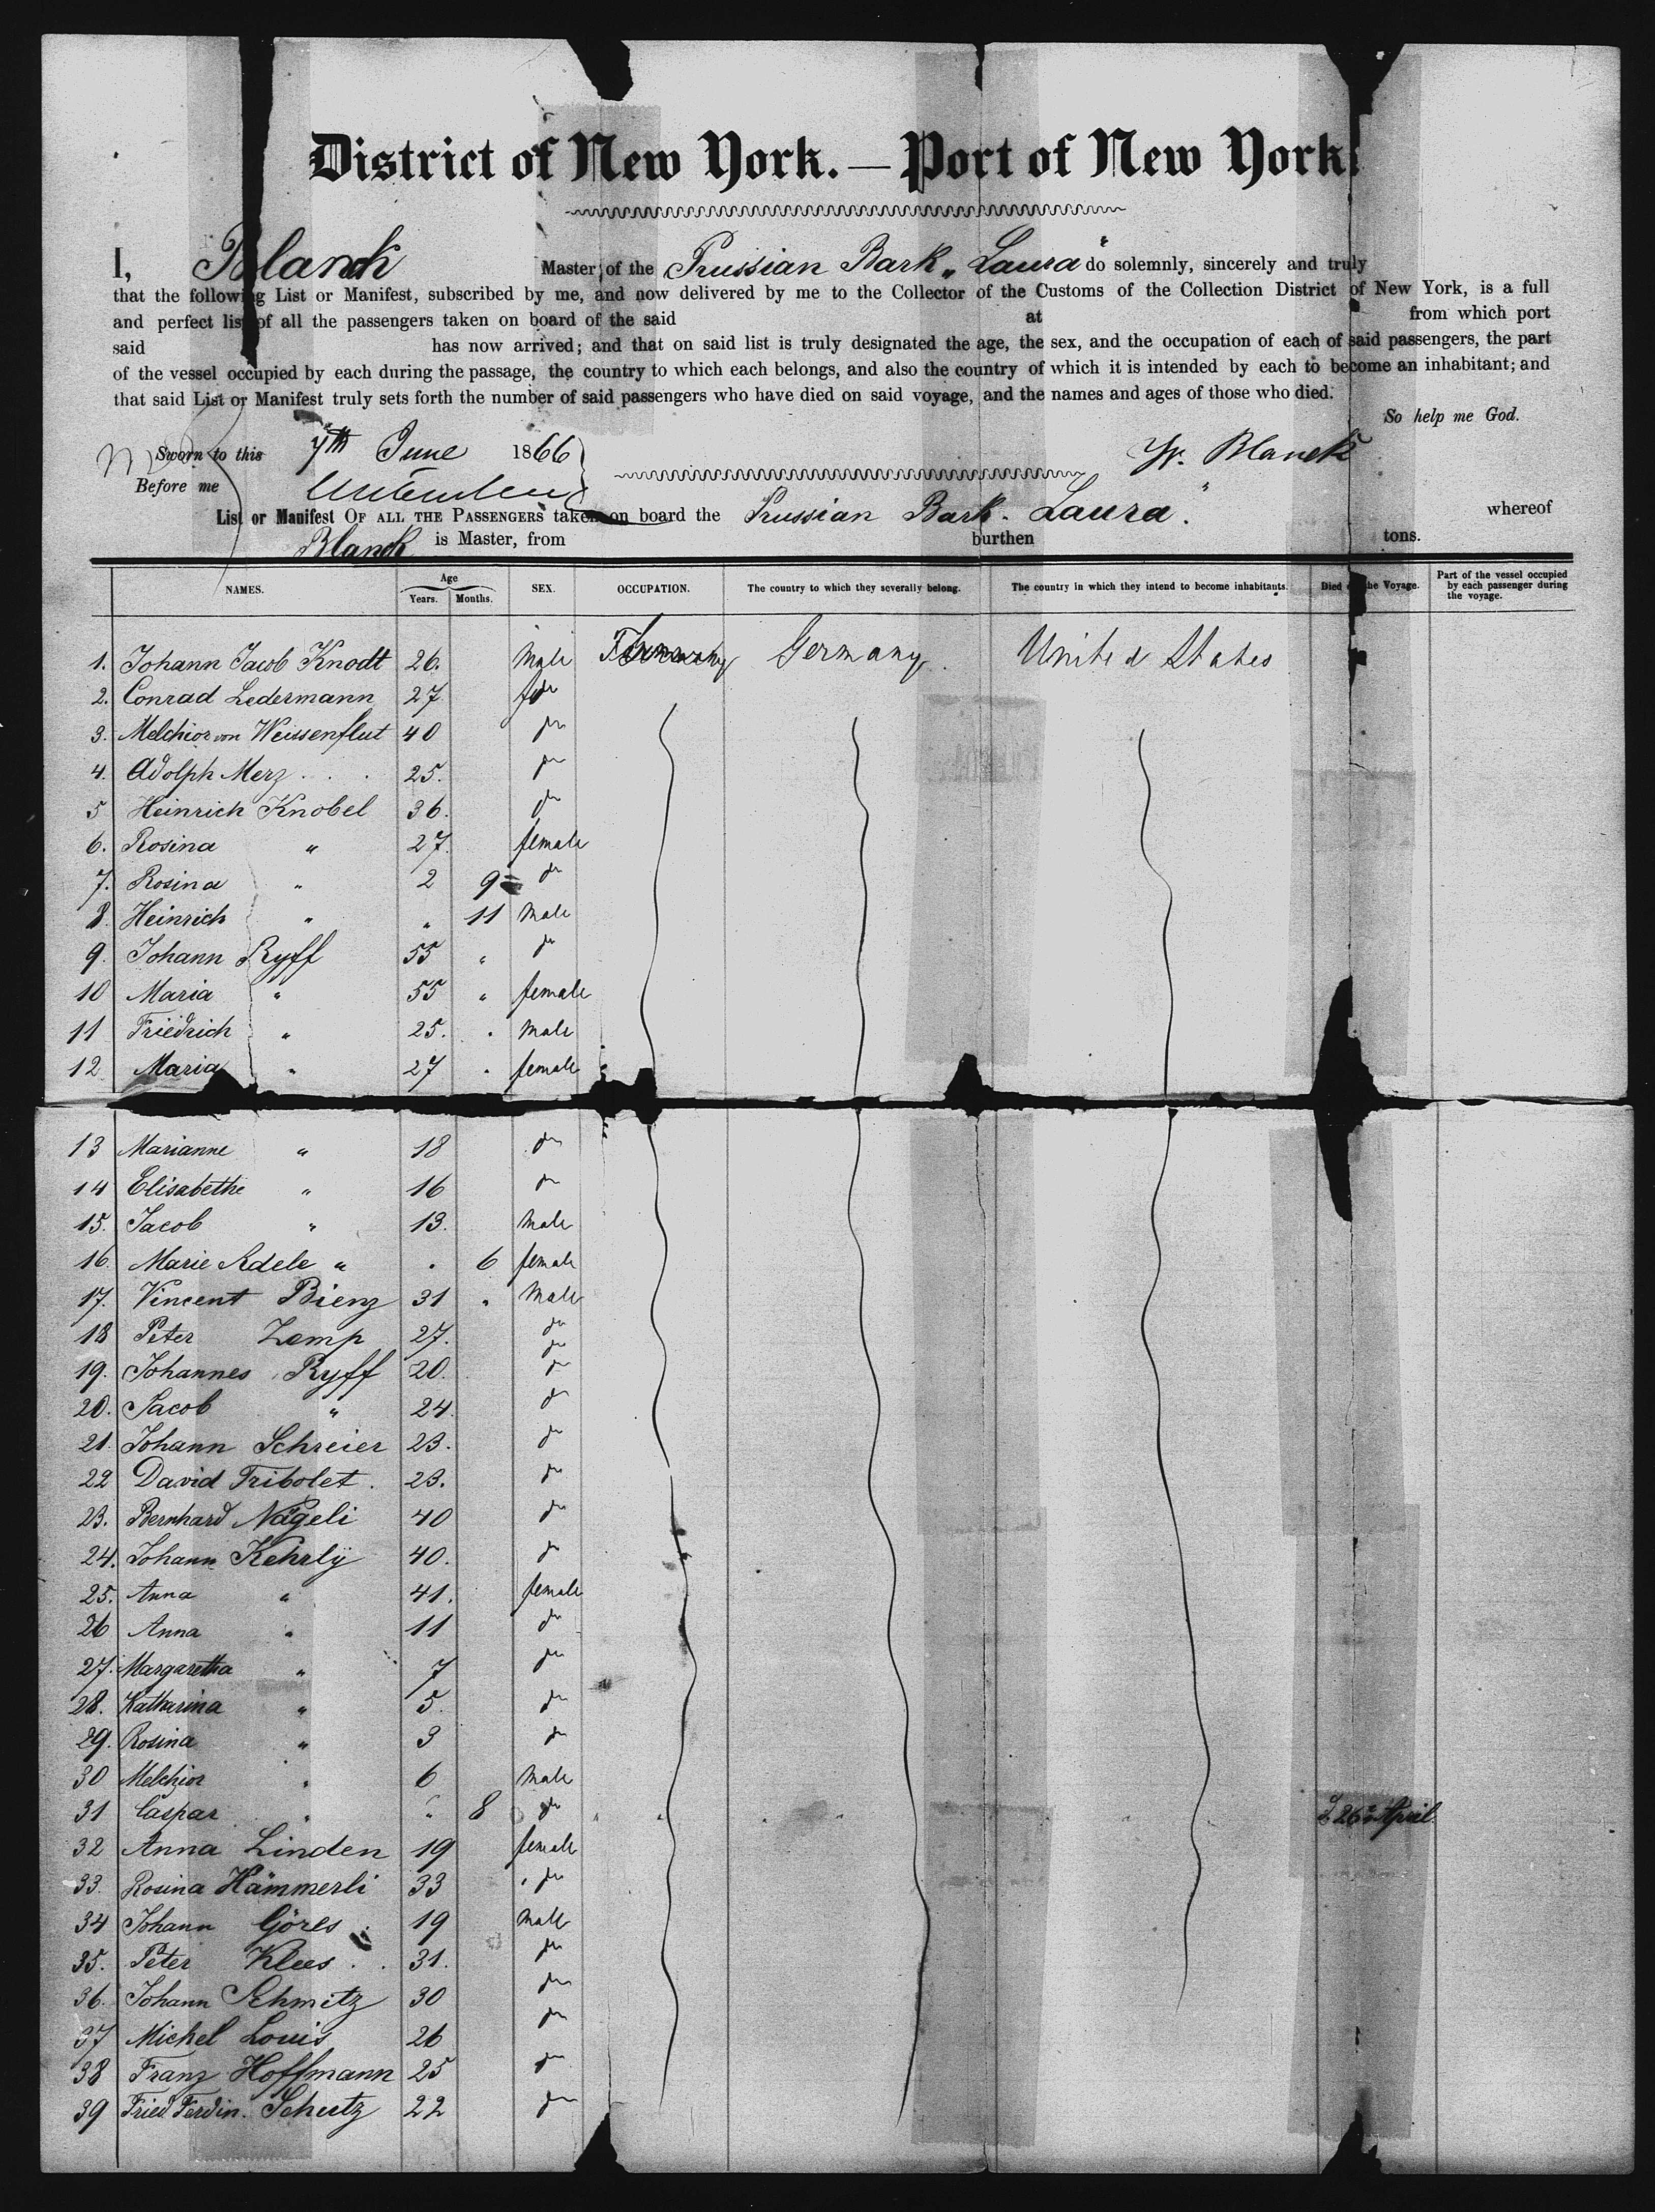 District of New York.—Port of New York.
I, Blanck Master of the Prussian Bark „Laura" do solemnly, sincerely and truly
that the following List or Manifest, subscribed by me, and now delivered by me to the Collector of the Customs of the Collection District of New York, is a full
and perfect list of all the passengers taken on board of the said at from which port
said has now arrived; and that on said list is truly designated the age, the sex, and the occupation of each of said passengers, the part
of the vessel occupied by each during the passage, the country to which each belongs, and also the country of which it is intended by each to become an inhabitant; and
that said List or Manifest truly sets forth the number of said passengers who have died on said voyage, and the names and ages of those who died.
So help me God.
Sworn to this 7th June 1866 W. Blanck
Before me
List or Manifest OF ALL THE PASSENGERS taken on board the Prussian Bark. Laura". whereof
Blanck is Master, from burthen tons.
NAMES. Age Years. Months. SEX. OCCUPATION. The country to which they severally belong. The country in which they intend to become inhabitants. Died on the Voyage. Part of the vessel occupied by each passenger during the voyage.
1. Johann Jacob Knodt 26. Male Germany United States
2. Conrad Ledermann 27. do
3. Melchior von Weissenflut 40 do
4. Adolph Merz . . . 25. do
5 Heinrich Knobel 36. do
6. Rosina " 27. female
7. Rosina " 2 9 do
8 Heinrich " " 11 Male
9. Johann Ryff 55 " do
10 Maria " 55 " female
11 Friedrich " 25. " Male
12 Maria " 27 " female
13 Marianne " 18 do
14 Elisabethe " 16 do
15. Jacob " 13. Male
16. Marie Adele " " 6 female
17. Vincent Bienz 31 " Male
18 Peter Zemp 27. do
19. Johannes Ryff 20. do
20. Jacob " 24. do
21. Johann Schreier 23. do
22 David Tribolet . 23. do
23. Bernhard Nägeli 40 do
24. Johann Kehrlÿ 40. do
25. Anna " 41. female
26 Anna " 11 do
27. Margaretha " 7 do
28. Katharina " 5. do
29. Rosina " 3 do
30 Melchior " 6 Male
31 Caspar " " 8 do 26 April.
32 Anna Linden 19 female
33. Rosina Hämmerli 33 do
34 Johann Göres . 19 Male
35. Peter Klees . . 31. do
36. Johann Schmitz 30 do
37 Michel Louis 26 do
38 Franz Hoffmann 25 do
39 Fried. Ferdin. Schutz 22 do